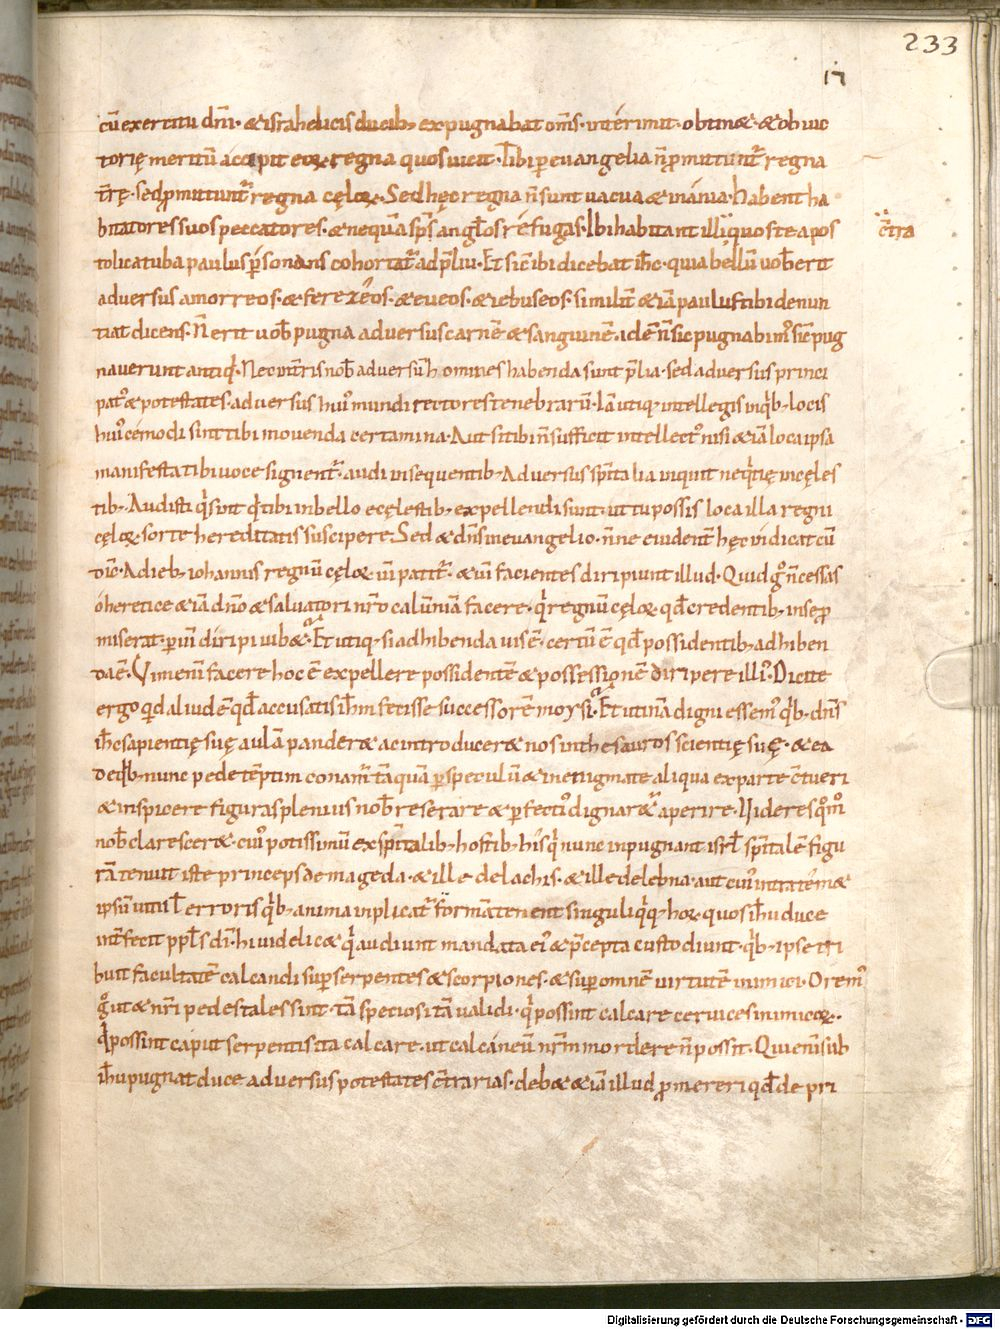 233
17
cū exercitu dnī· & israheliticis ducib; expugnabat om̄s· interimit· obtin&· & ob uic
torię meritū accipit eoꝝ regna quos uicit· Tibi ꝑ euangelia n̄ ꝓmittunt̄ regna
tr̄ę· sed ꝓmittunt̄ regna cęloꝝ· Sed hęc regna n̄ sunt uacua & inánia· habent ha
bitatores suos peccatores· & nequā sp̄s angl̄os réfugas· Ibi habitant illi ÷ quos te apos
c̄tra
tolica tuba paulus ꝑsonans cohortat̄ ad p̄liū· Et sic̄ ibi dicebat ih̄c· quia bellū uob̄ erit
aduersus amorreos· & ferezéos· & eueos· & iebuseos· similit̄ & iā paulus tibi denun
tiat dicens· N̄ erit uob̄ pugna aduersus carnē & sanguinē· idē n̄ sic pugnabim᾽ sic̄ pug
nauerunt antiq̇· Nec int̄ris nob̄ aduersū hómines habenda sunt p̄lia· sed aduersus princi
pat᾽ & potestates· aduersus hui᾽ mundi rectores tenebrarū· Iā utiq; intellegis inq̇b; locis
hui᾽cémodi sint tibi mouenda certamina· Aut si tibi n̄ sufficit intellect᾽ nisi & iā loca ipsa
manifesta tibi uoce signent̄· audi in sequentib; Aduersus sp̄italia inquit neq̇tię in cęles
tib; Audisti q̇ sint q̇ tibi in bello ecęlestib; expellendi sunt· ut tu possis loca illa regni
cęloꝝ· sorte hereditatis suscipere· Sed & dn̄s in euangelio· n̄ne euident̄ hęc indicat cū
dic̄· A dieb; iohannis regnū cęloꝝ uī patit̄· & uī facientes diripiunt illud· Quid g᾽ n̄ cessas
ó heretice & iā dn̄o & saluatori nr̄o calūniā facere· q̇ regnū cęloꝝ· qd̄ credentib; in se ꝓ
miserat· ꝑ uim diripi iub&· Et utiq; si adhibenda uis ē· certū ē qd̄ possidentib; adhiben
da ē· Vim enī facere hoc ē expellere possidentē & possessionē diripere illi᾽· Dicite
ergo qid aliud ē qd̄ accusatis ih̄m fecisse successorē moysi· Et utinā digni essem᾽ q̇b; dn̄s
ih̄c sapientię suę aulā pander& ac introducer& nos in thesauros scientię suę· & ea
de q̇b; nunc pedetēptim conam̄ tāquā ꝑ speculū & in enigmate aliqua ex parte c̄tueri
& inspicere figuras plenius nob̄ reserare & ꝑfecti᾽ dignar& aperire· Uideres qm̊
nob̄ clarescer&· cui᾽ potissimū ex sp̄italib; hostib; his q̇ nunc inpugnant isrl̄ sp̄italē figu
rā tenuit iste princeps de mageda· & ille de lachis· & ille de lebna· aut cui᾽ intratém&
ipsū uinc̄l erroris q̇b; anima inplicat̄ formā tenent singuli q̇q; hoꝝ quos ih̄u duce
int̄fecit ppl̄s dī· hi uidelic& q̇ audiunt mandata ei᾽ & p̄cepta custodiunt· q̇b; ipse tri
buit facultatē calcandi suꝑ serpentes & scorpiones· & suꝑ omnē uirtutē inimici· Orem᾽
g᾽ ut & nr̄i pedes tales sint· tā speciosi tā ualidi· q̇ possint calcare ceruices inimicoꝝ·
q̇ possint caput serpentis ita calcare· ut calcáneū nr̄m mordere n̄ possit· Qui enī sub
ih̄u pugnat duce aduersus potestates c̄trarias· deb& & iā illud ꝓmereri qd̄ de pri
Digitalisierung gefördert durch die Deutsche Forschungsgemeinschaft - DFG